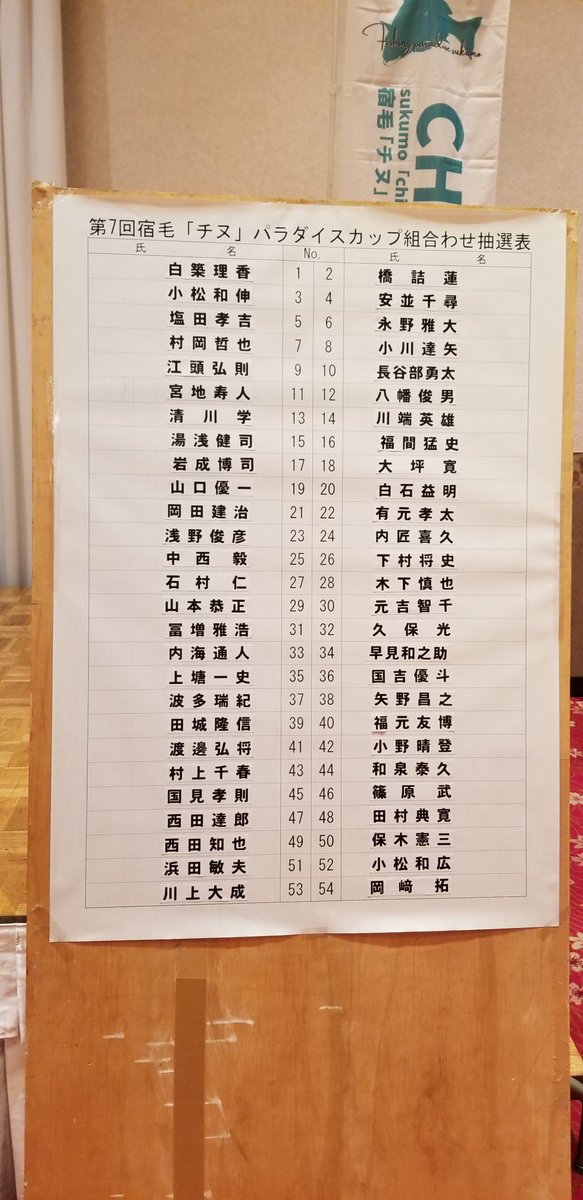 Fishing paradise sukumo
CH
sukumo「chi
宿毛「チヌ」
第7回宿毛「チヌ」パラダイスカップ組合わせ抽選表
氏 名 No. 氏 名
白築理香 1 2 橋詰蓮
小松和伸 3 4 安並千尋
塩田孝吉 5 6 永野雅大
村岡哲也 7 8 小川達矢
江頭弘則 9 10 長谷部勇太
宮地寿人 11 12 八幡俊男
清川学 13 14 川端英雄
湯浅健司 15 16 福間猛史
岩成博司 17 18 大坪寛
山口優一 19 20 白石益明
岡田建治 21 22 有元孝太
浅野俊彦 23 24 内匠喜久
中西毅 25 26 下村将史
石村仁 27 28 木下慎也
山本恭正 29 30 元吉智千
冨増雅浩 31 32 久保光
内海通人 33 34 早見和之助
上塘一史 35 36 国吉優斗
波多瑞紀 37 38 矢野昌之
田城隆信 39 40 福元友博
渡邊弘将 41 42 小野晴登
村上千春 43 44 和泉泰久
国見孝則 45 46 篠原武
西田達郎 47 48 田村典寛
西田知也 49 50 保木憲三
浜田敏夫 51 52 小松和広
川上大成 53 54 岡﨑拓